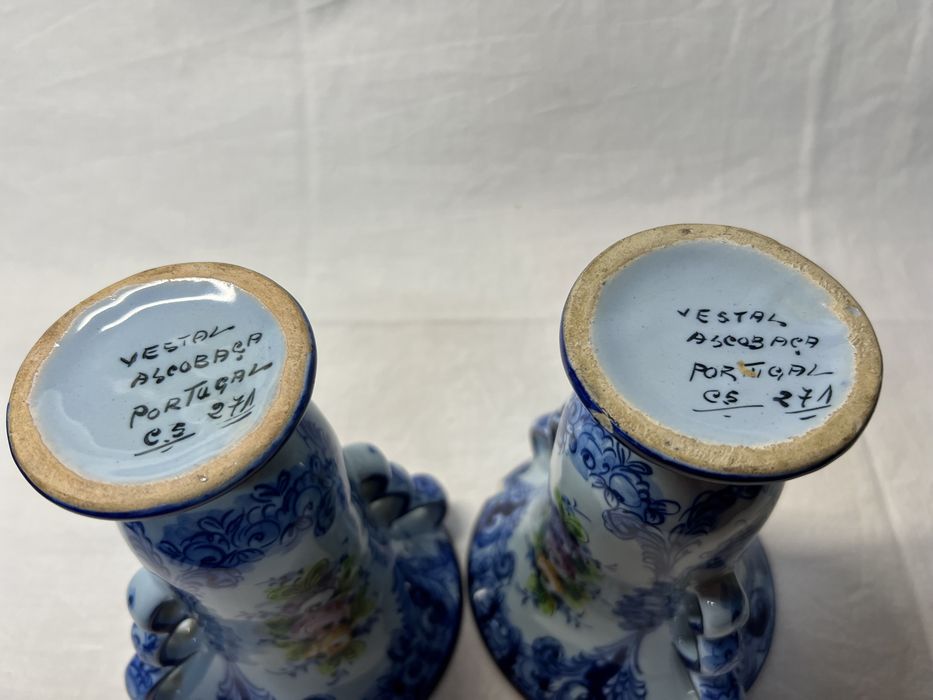 VESTAL
ALCOBAÇA
PORTUGAL
C.S 271
VESTAL
ALCOBAÇA
PORTUGAL
CS 271